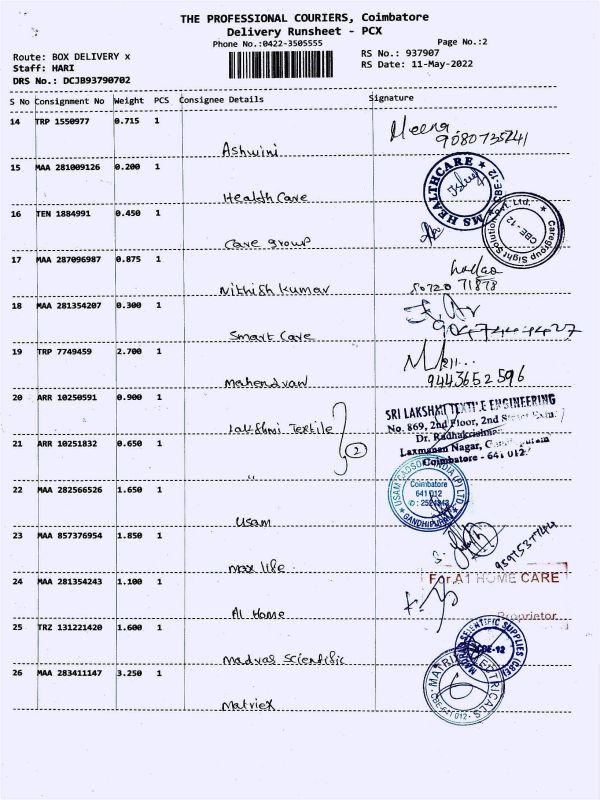 THE PROFESSIONAL COURIERS, Coimbatore
Delivery Runsheet - PCX
Phone No.:0422-3505555
Page No.:2
Route: BOX DELIVERY x
RS No.: 937907
Staff: HARI
RS Date: 11-May-2022
DRS No.: DCJB93790702
S No Consignment No Weight PCS Consignee Details Signature
14 TRP 1550977 0.715 1
Meena
9080735241
Ashwini
15 MAA 281009126 0.200 1
MS HEALTHCARE ★ CBE-12 ★
Health Care
16 TEN 1884991 0.450 1
Caregroup Sight Solution Pvt. Ltd.
CBE-12
Care group
17 MAA 287096987 0.875 1
Nithish kumar
80720 71878
18 MAA 281354207 0.300 1
Smart Care
19 TRP 7749459 2.700 1
Mahendran
9443652596
20 ARR 10250591 0.900 1
SRI LAKSHMI TEXTILE ENGINEERING
No. 869, 2nd Floor, 2nd Street Extn.
Dr. Radhakrishnan
Lakshmi Textile
2
21 ARR 10251832 0.650 1
Laxmanan Nagar,
Coimbatore - 641 012
"
22 MAA 282566526 1.650 1
(P) LTD
Coimbatore
641 012
GANDHIPURAM
Usam
23 MAA 857376954 1.850 1
Max life
24 MAA 281354243 1.100 1
For A1 HOME CARE
Proprietor
A1 Home
25 TRZ 131221420 1.600 1
MADRAS SCIENTIFIC SUPPLIES (CBE)
CBE-12
Madras Scientific
26 MAA 283411147 3.250 1
MATRIX ELECTRICALS
CBE-641 012
Matriex